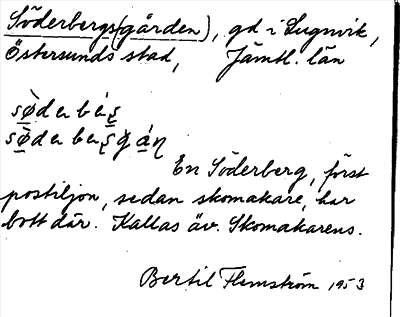 Söderbergs(gården), gd i Lugnvik,
Östersunds stad, Jämtl. län
sø̀dabé̱ʂ
sø̀dabeʂgáɳ
En Söderberg, först
postiljon, sedan skomakare, har
bott där. Kallas äv. Skomakarens.
Bertil Flemström 1953